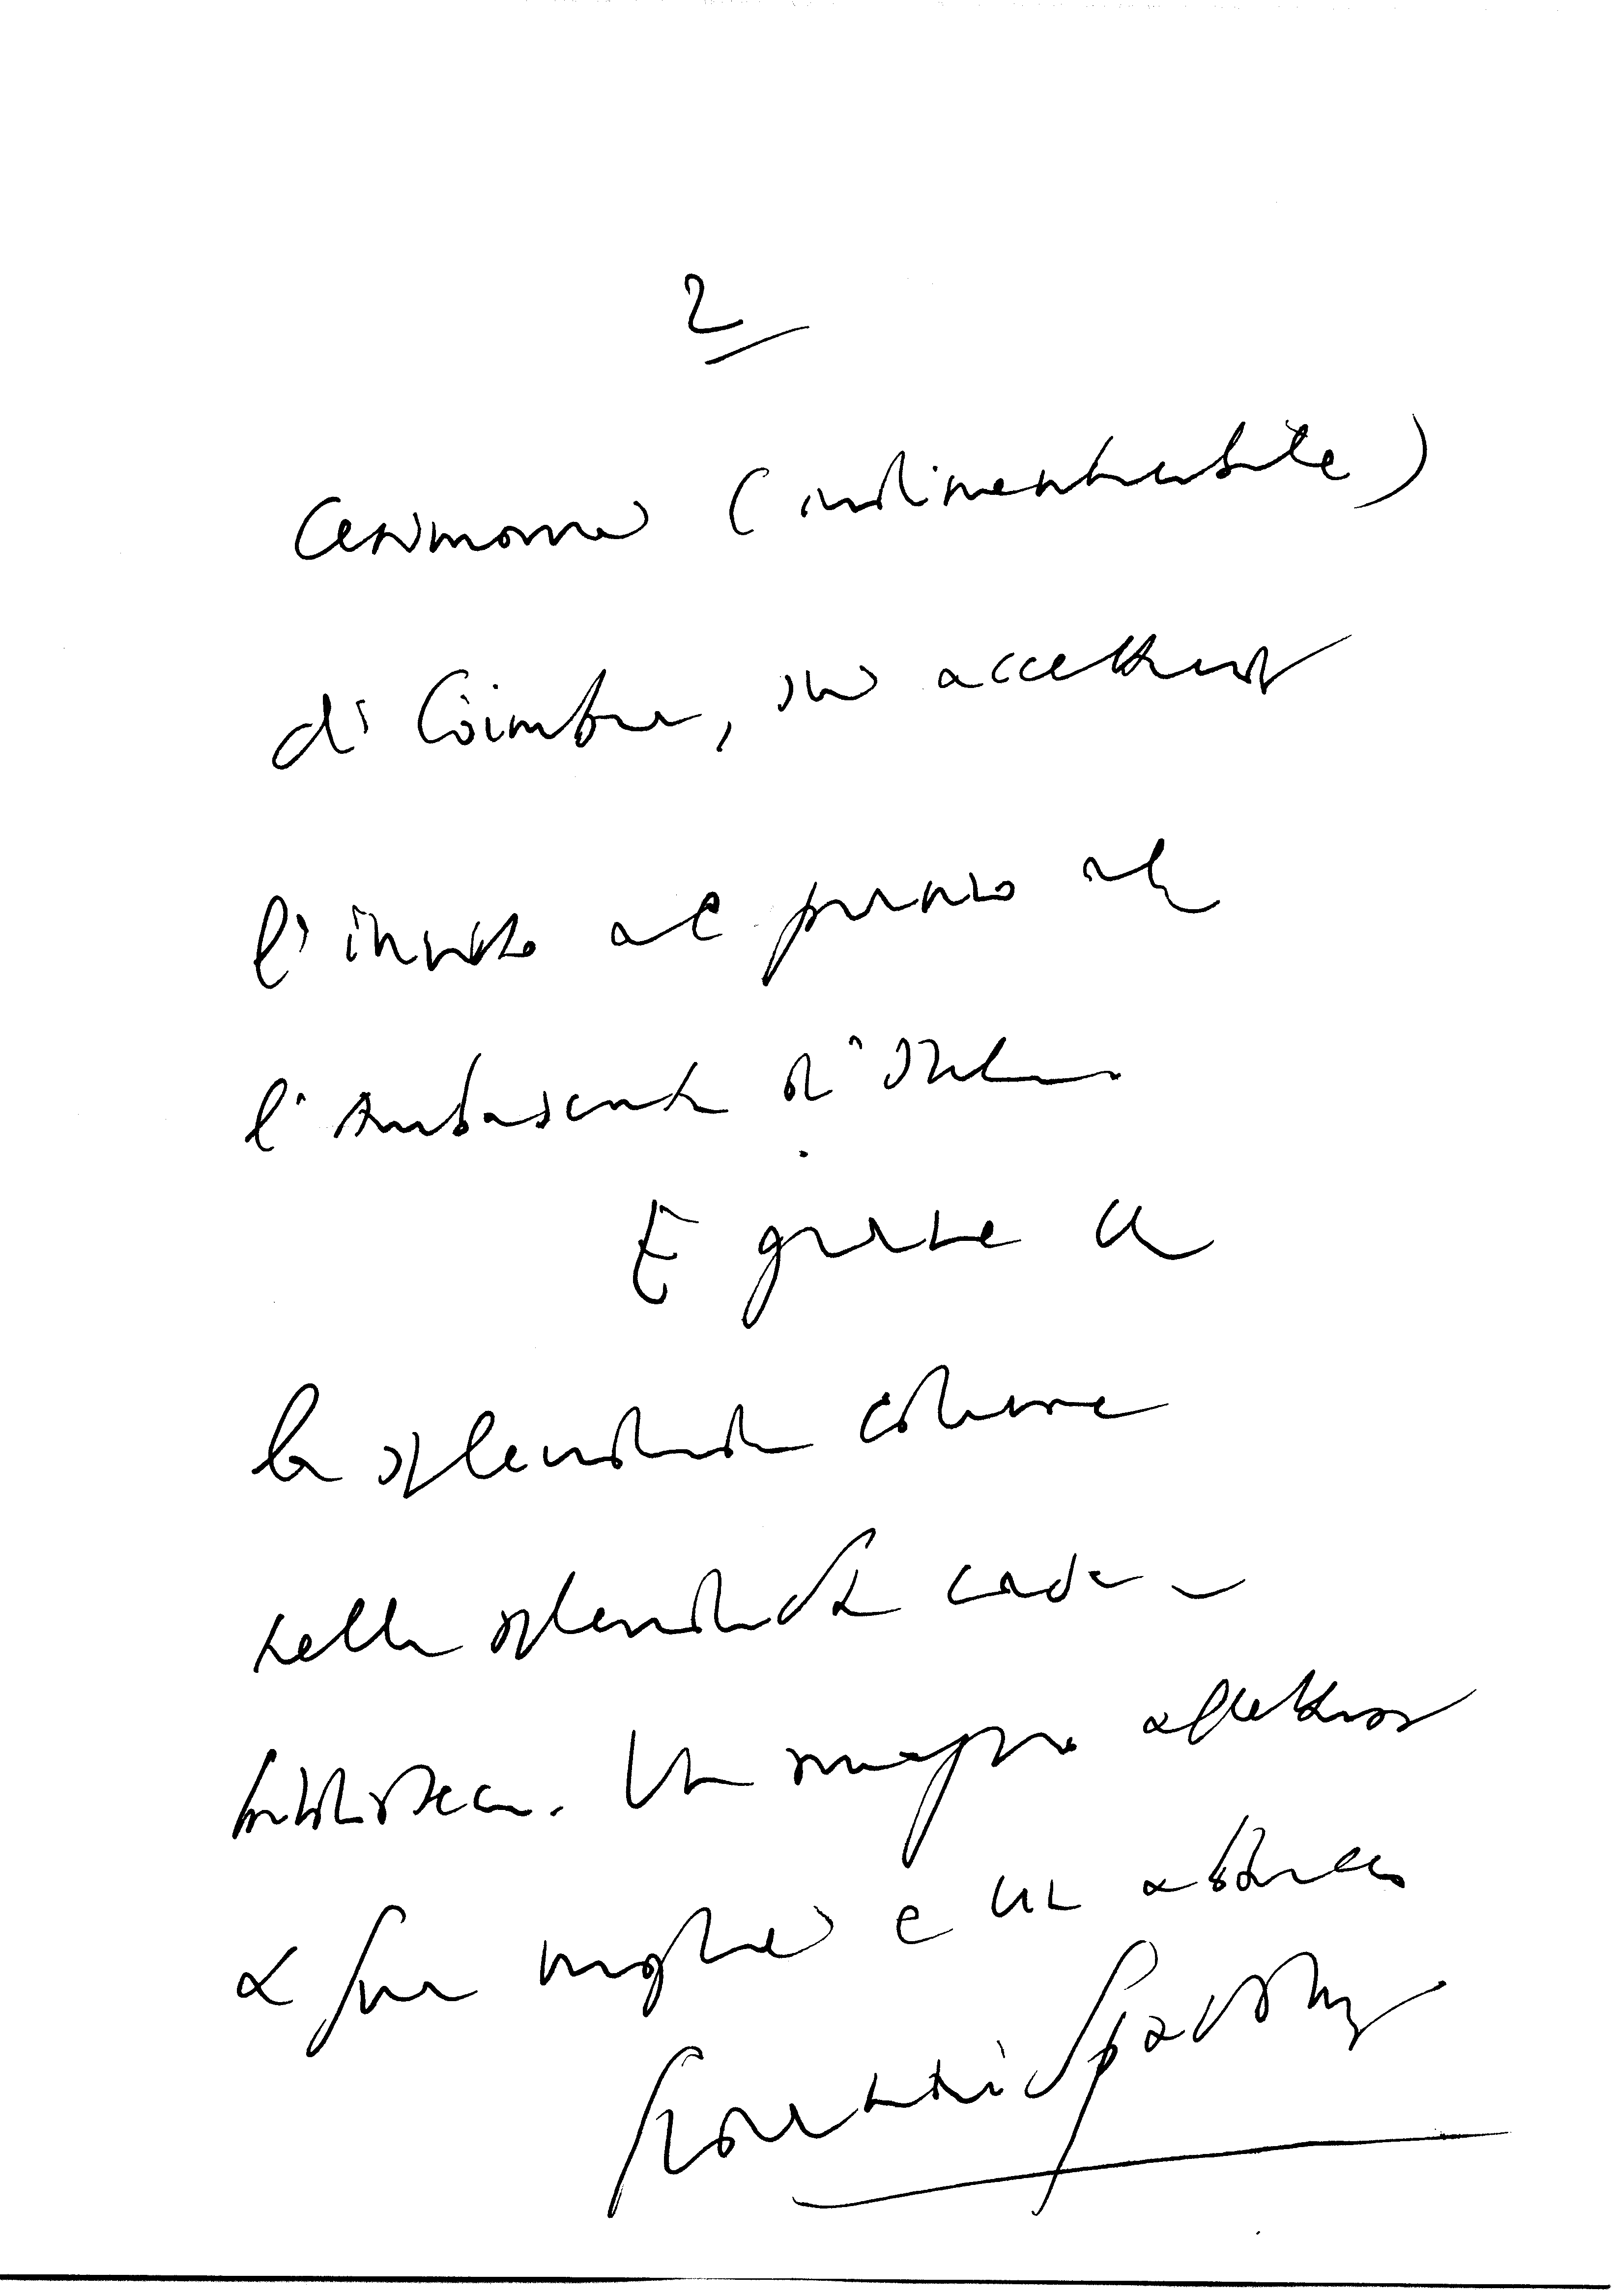 2
cerimonia (indimenticabile)
di Coimbra, sia accettando
l'invito al pranzo al
l'Ambasciata d'Italia
E grazie
la splendida
nella splendida
biblioteca. Un affettuoso
a sua moglie e un abbraccio
Giovanni Spadolini